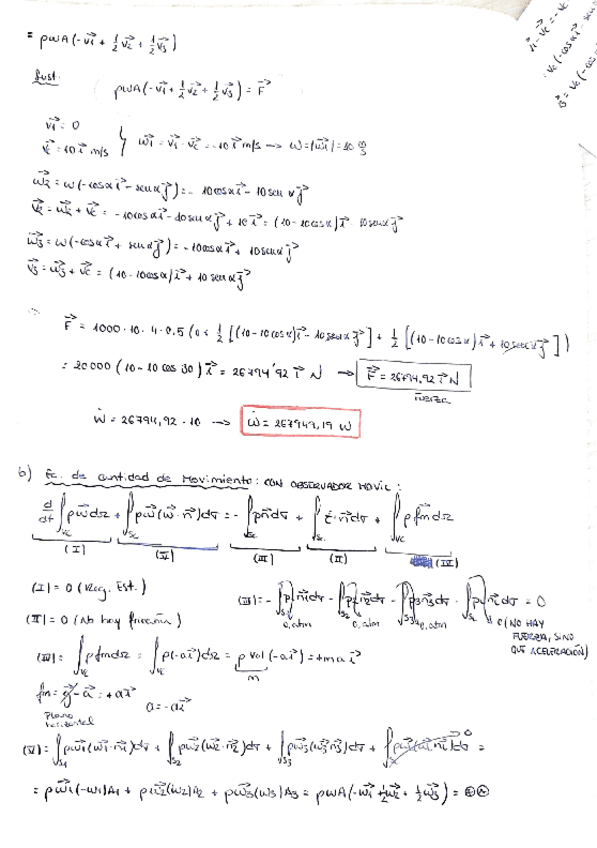 = ρwA(-v⃗1 + 1/2 v⃗2 + 1/2 v⃗3)
v⃗1 - v⃗c = -v⃗c
Sust. ρwA(-v⃗1 + 1/2 v⃗2 + 1/2 v⃗3) = F⃗
v⃗1 = 0
v⃗c = 10 i⃗ m/s } w⃗1 = v⃗1 - v⃗c = -10 i⃗ m/s → w = |w⃗1| = 10 m/s
w⃗2 = w(-cosα i⃗ - senα j⃗) = -10cosα i⃗ - 10senα j⃗
v⃗2 = w⃗2 + v⃗c = -10cosα i⃗ - 10senα j⃗ + 10 i⃗ = (10-10cosα) i⃗ - 10senα j⃗
w⃗3 = w(-cosα i⃗ + senα j⃗) = -10cosα i⃗ + 10senα j⃗
v⃗3 = w⃗3 + v⃗c = (10-10cosα) i⃗ + 10 senα j⃗
F⃗ = 1000·10·4·0.5 (0 + 1/2 [(10-10cosα) i⃗ - 10senα j⃗] + 1/2 [(10-10cosα) i⃗ + 10senα j⃗])
= 20000 (10-10 cos 30) i⃗ = 26794'92 i⃗ N → F⃗ = 26794,92 i⃗ N
fuerza
Ẇ = 26794,92 · 10 → Ẇ = 267949,19 W
b) Ec. de Cantidad de Movimiento: CON OBSERVADOR MOVIL:
d/dt ∫Vc ρw⃗dΩ + ∫Sc ρw⃗(w⃗·n⃗)dσ = -∫Sc pn⃗dσ + ∫Sc τ⃗·n⃗dσ + ∫Vc ρf⃗m dΩ
(I) (V) (III) (II) (IV)
(I) = 0 (Reg. Est.) (III) = -∫S1 p1n⃗1dσ - ∫S2 p2n⃗2dσ - ∫S3 p3n⃗3dσ - ∫SL pn⃗dσ = 0
0, atm 0, atm 0, atm 0 (NO HAY FUERZA, SINO QUE ACELERACIÓN)
(II) = 0 (No hay fricción)
(IV) = ∫Vc ρf⃗m dΩ = ∫Vc ρ(-a i⃗)dΩ = ρ Vol (-a i⃗) = +m a i⃗
m
f⃗m = g⃗ - a⃗ = +a i⃗ a = -a i⃗
Plano horizontal
(V) = ∫S1 ρw⃗1(w⃗1·n⃗1)dσ + ∫S2 ρw⃗2(w⃗2·n⃗2)dσ + ∫S3 ρw⃗3(w⃗3·n⃗3)dσ + ∫ ρw⃗(w⃗·n⃗)dσ 0 =
= ρw⃗1(-w1)A1 + ρw⃗2(w2)A2 + ρw⃗3(w3)A3 = ρwA(-w⃗1 + 1/2 w⃗2 + 1/2 w⃗3) =